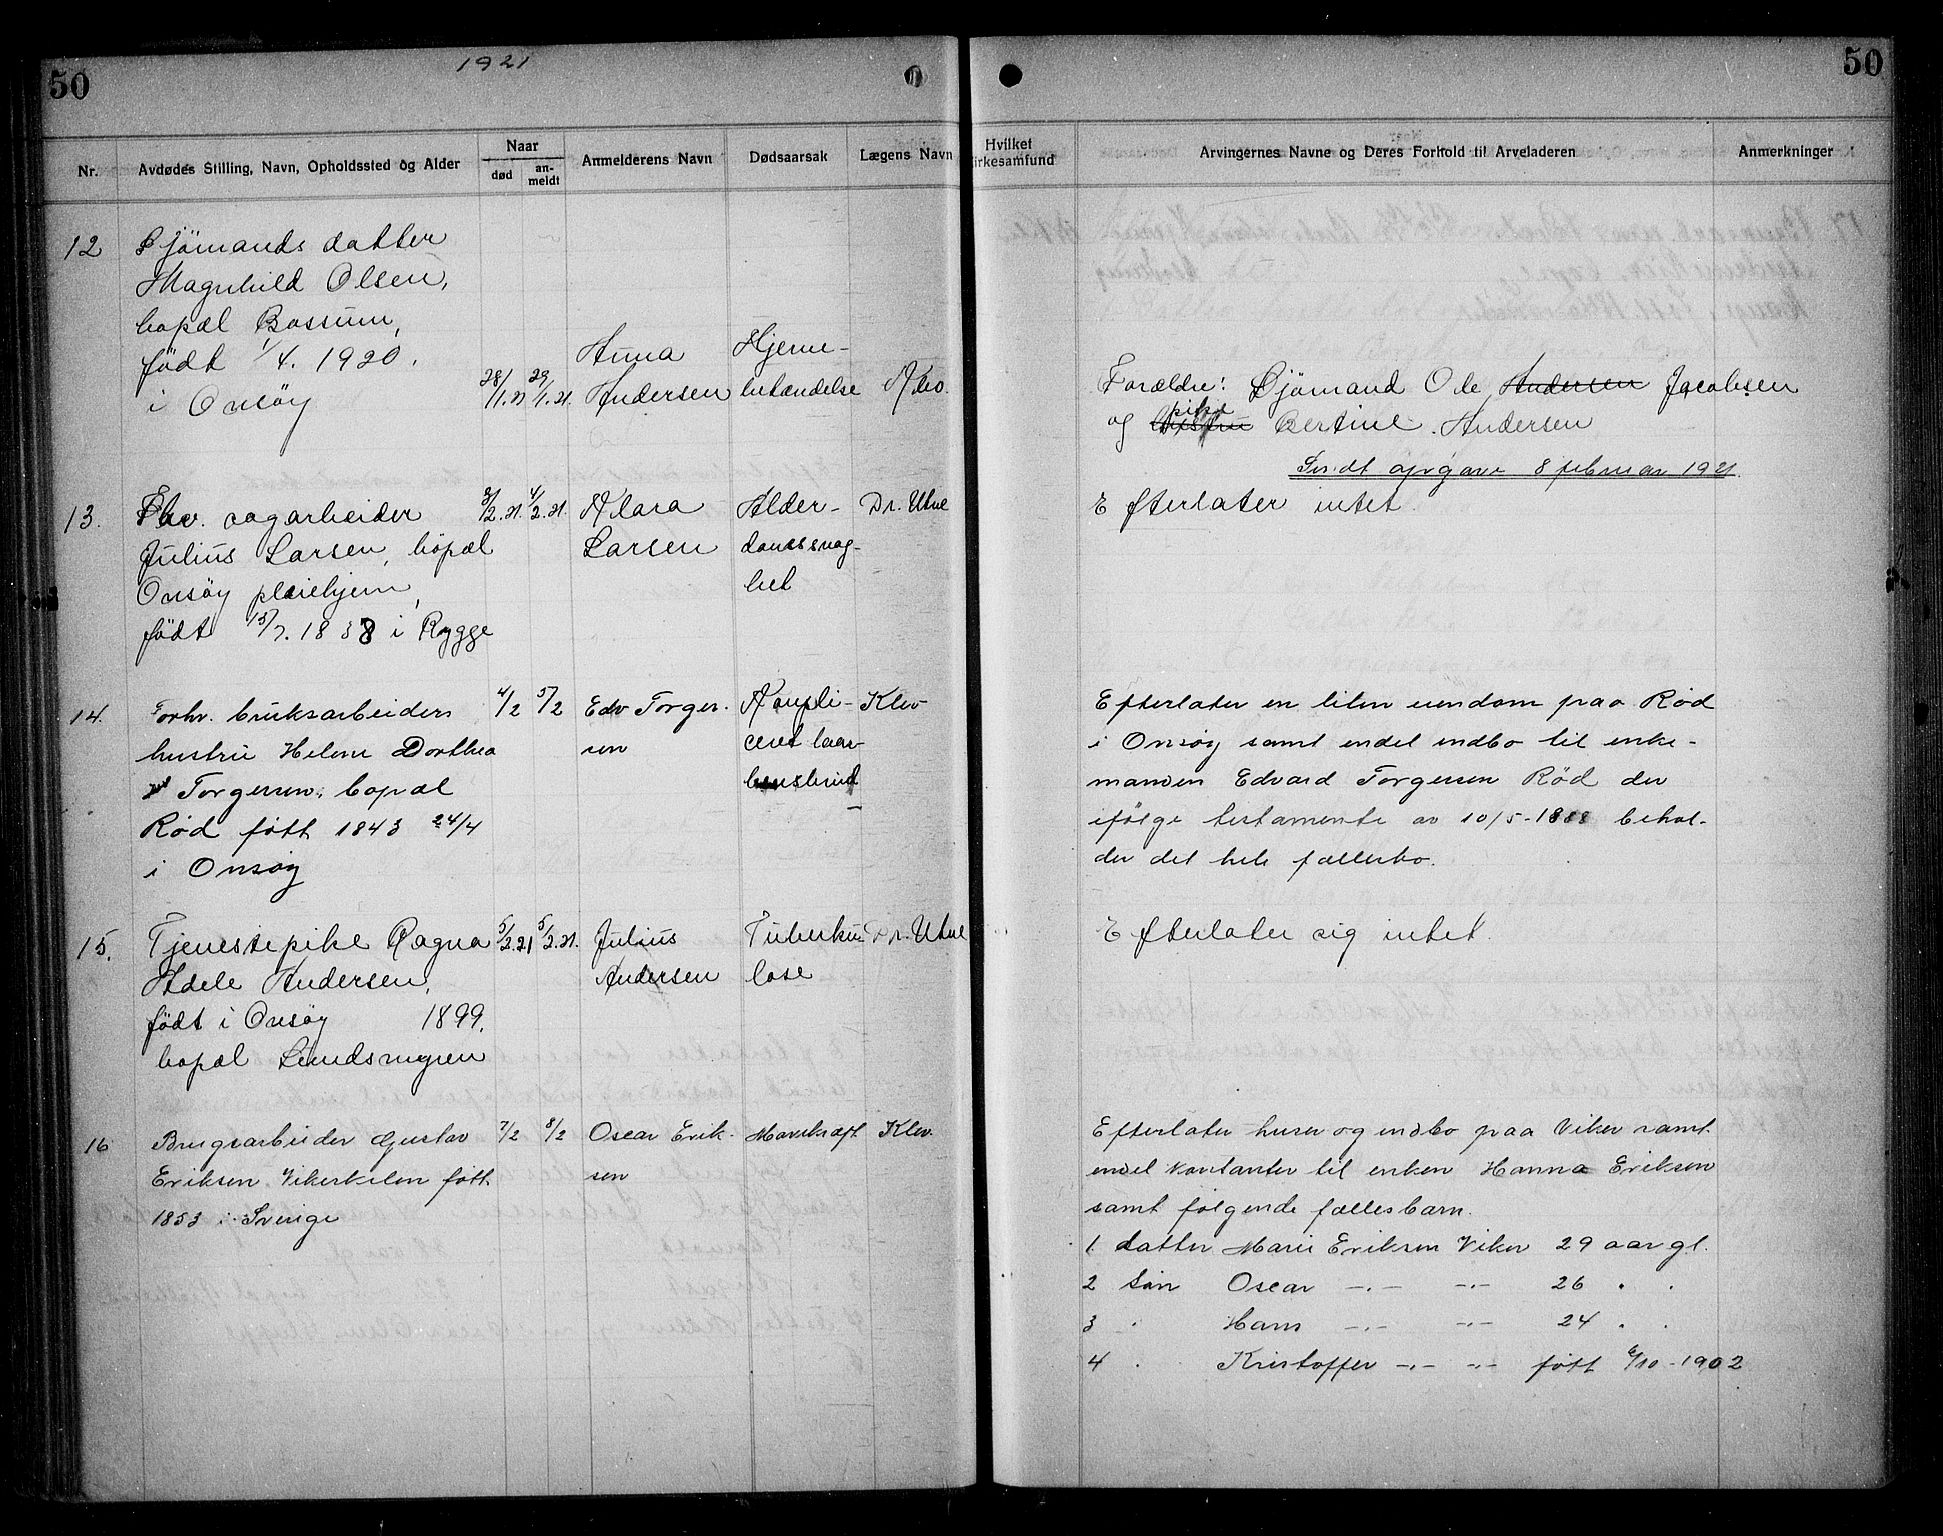 50
1921
Nr.
Avdødes Stilling, Navn, Opholdssted og Alder
Naar
død
an-
meldt
Anmelderens Navn
Dødsaarsak
Lægens Navn
12
Sjömands datter
Magnhild Olsen,
bopæl Bossum,
født 1/4. 1920.
i Onsöy
28/1.21
29/1.21.
Anna
Andersen
Hjerne-
betændelse
Klev.
13.
Fhv. sagarbeider
Julius Larsen, bopæl
Onsöy pleiehjem,
født 15/7. 1838 i Rygge
3/2.21.
4/2.21.
Klara
Larsen
Alder-
domssvag-
het
Dr. Utne
14.
Forhv. bruksarbeiders
hustru Helene Dorthea
Torgersen. bopæl
Rød føtt 1843 24/4
i Onsøy
4/2
5/2
Edv Torger-
sen
Kompli-
ceret laar-
bensbrud
Klev
15.
Tjenestepike Ragna
Adele Andersen,
født i Onsøy 1899,
bopæl Lundsmyren
5/2.21
5/2.21.
Julius
Andersen
Tuberku-
lose
Dr. Utne
16
Brugsarbeider Gustav
Eriksen Vikerkilen føtt
1853 i Sverige
7/2
8/2
Oscar Erik-
sen
Mavekræft
Klev.
50
Hvilket
irkesamfund
Arvingernes Navne og Deres Forhold til Arveladeren
Anmerkninger
Forældre: Sjömand Ole Andersen Jacobsen
og hustru pike Bertine Andersen
Sendt opgave 8 februar 1921.
Efterlater intet.
Efterlater en liten eiendom paa Rød
i Onsøy samt endel indbo til enke-
manden Edvard Torgersen Rød der
ifølge testamente av 10/5-1888 behol-
der det hele fællesbo.
Efterlater sig intet.
Efterlater huser og indbo paa Viker samt
endel kontanter til enken Hanna Eriksen
samt følgende fællesbarn.
1. datter Marie Eriksen Viker 29 aar gl.
2 Søn Oscar -"- -"- 26 " "
3 " Hans -"- -"- 24 " "
4 " Kristoffer -"- -"- født 6/10-1902